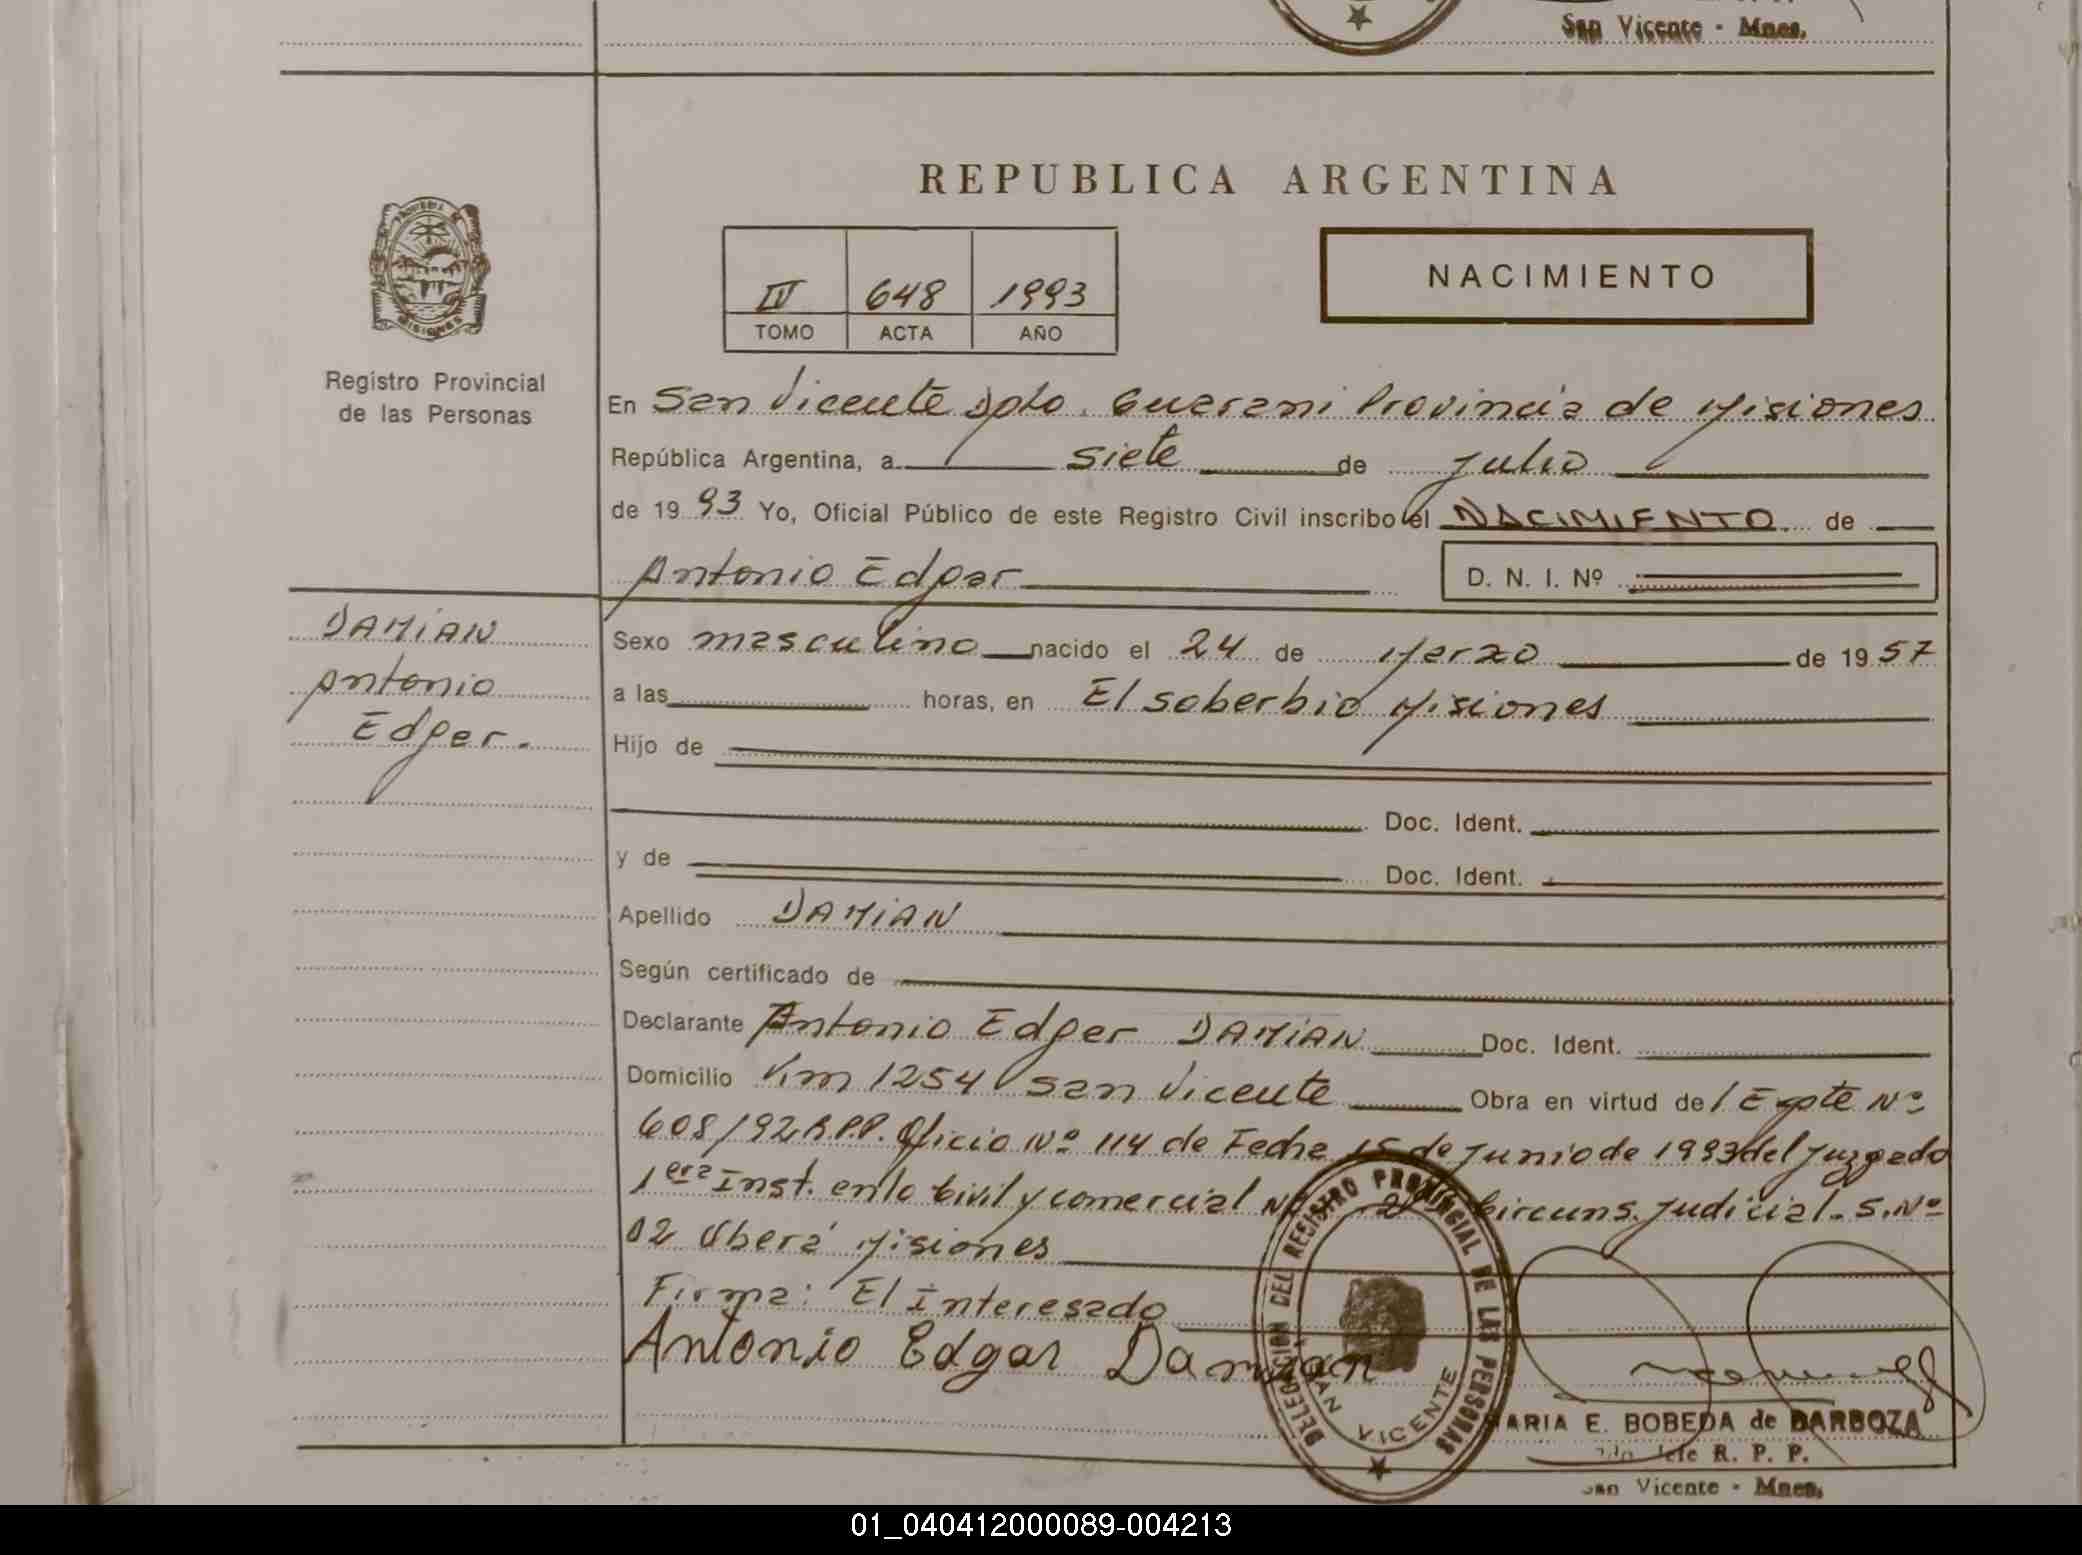 San Vicente - Mnes.
REPUBLICA ARGENTINA
IV 648 1993
TOMO ACTA AÑO
NACIMIENTO
PROVINCIA DE MISIONES
Registro Provincial
de las Personas
En San Vicente Dpto. Guarani Provincia de Misiones
República Argentina, a siete de Julio
de 1993 Yo, Oficial Público de este Registro Civil inscribo el NACIMIENTO de
Antonio Edgar
D. N. I. Nº
DAMIAN
Antonio
Edgar.
Sexo masculino nacido el 24 de Marzo de 1957
a las horas, en El soberbio Misiones
Hijo de
Doc. Ident.
y de Doc. Ident.
Apellido DAMIAN
Según certificado de
Declarante Antonio Edgar DAMIAN Doc. Ident.
Domicilio Km 1254 San Vicente Obra en virtud de / Expte Nº
608/92 R.P.P. Oficio Nº 114 de Fecha 15 de Junio de 1993 del Juzgado
1era Inst. en lo Civil y comercial Nº 2 Circuns. Judicial. S. Nº
02 Oberá Misiones
Firma: El Interesado
Antonio Edgar Damian
DELEGACION DEL REGISTRO PROVINCIAL DE LAS PERSONAS
SAN VICENTE
MARIA E. BOBEDA de BARBOZA
Jefe R. P. P.
San Vicente - Mnes.
01_040412000089-004213